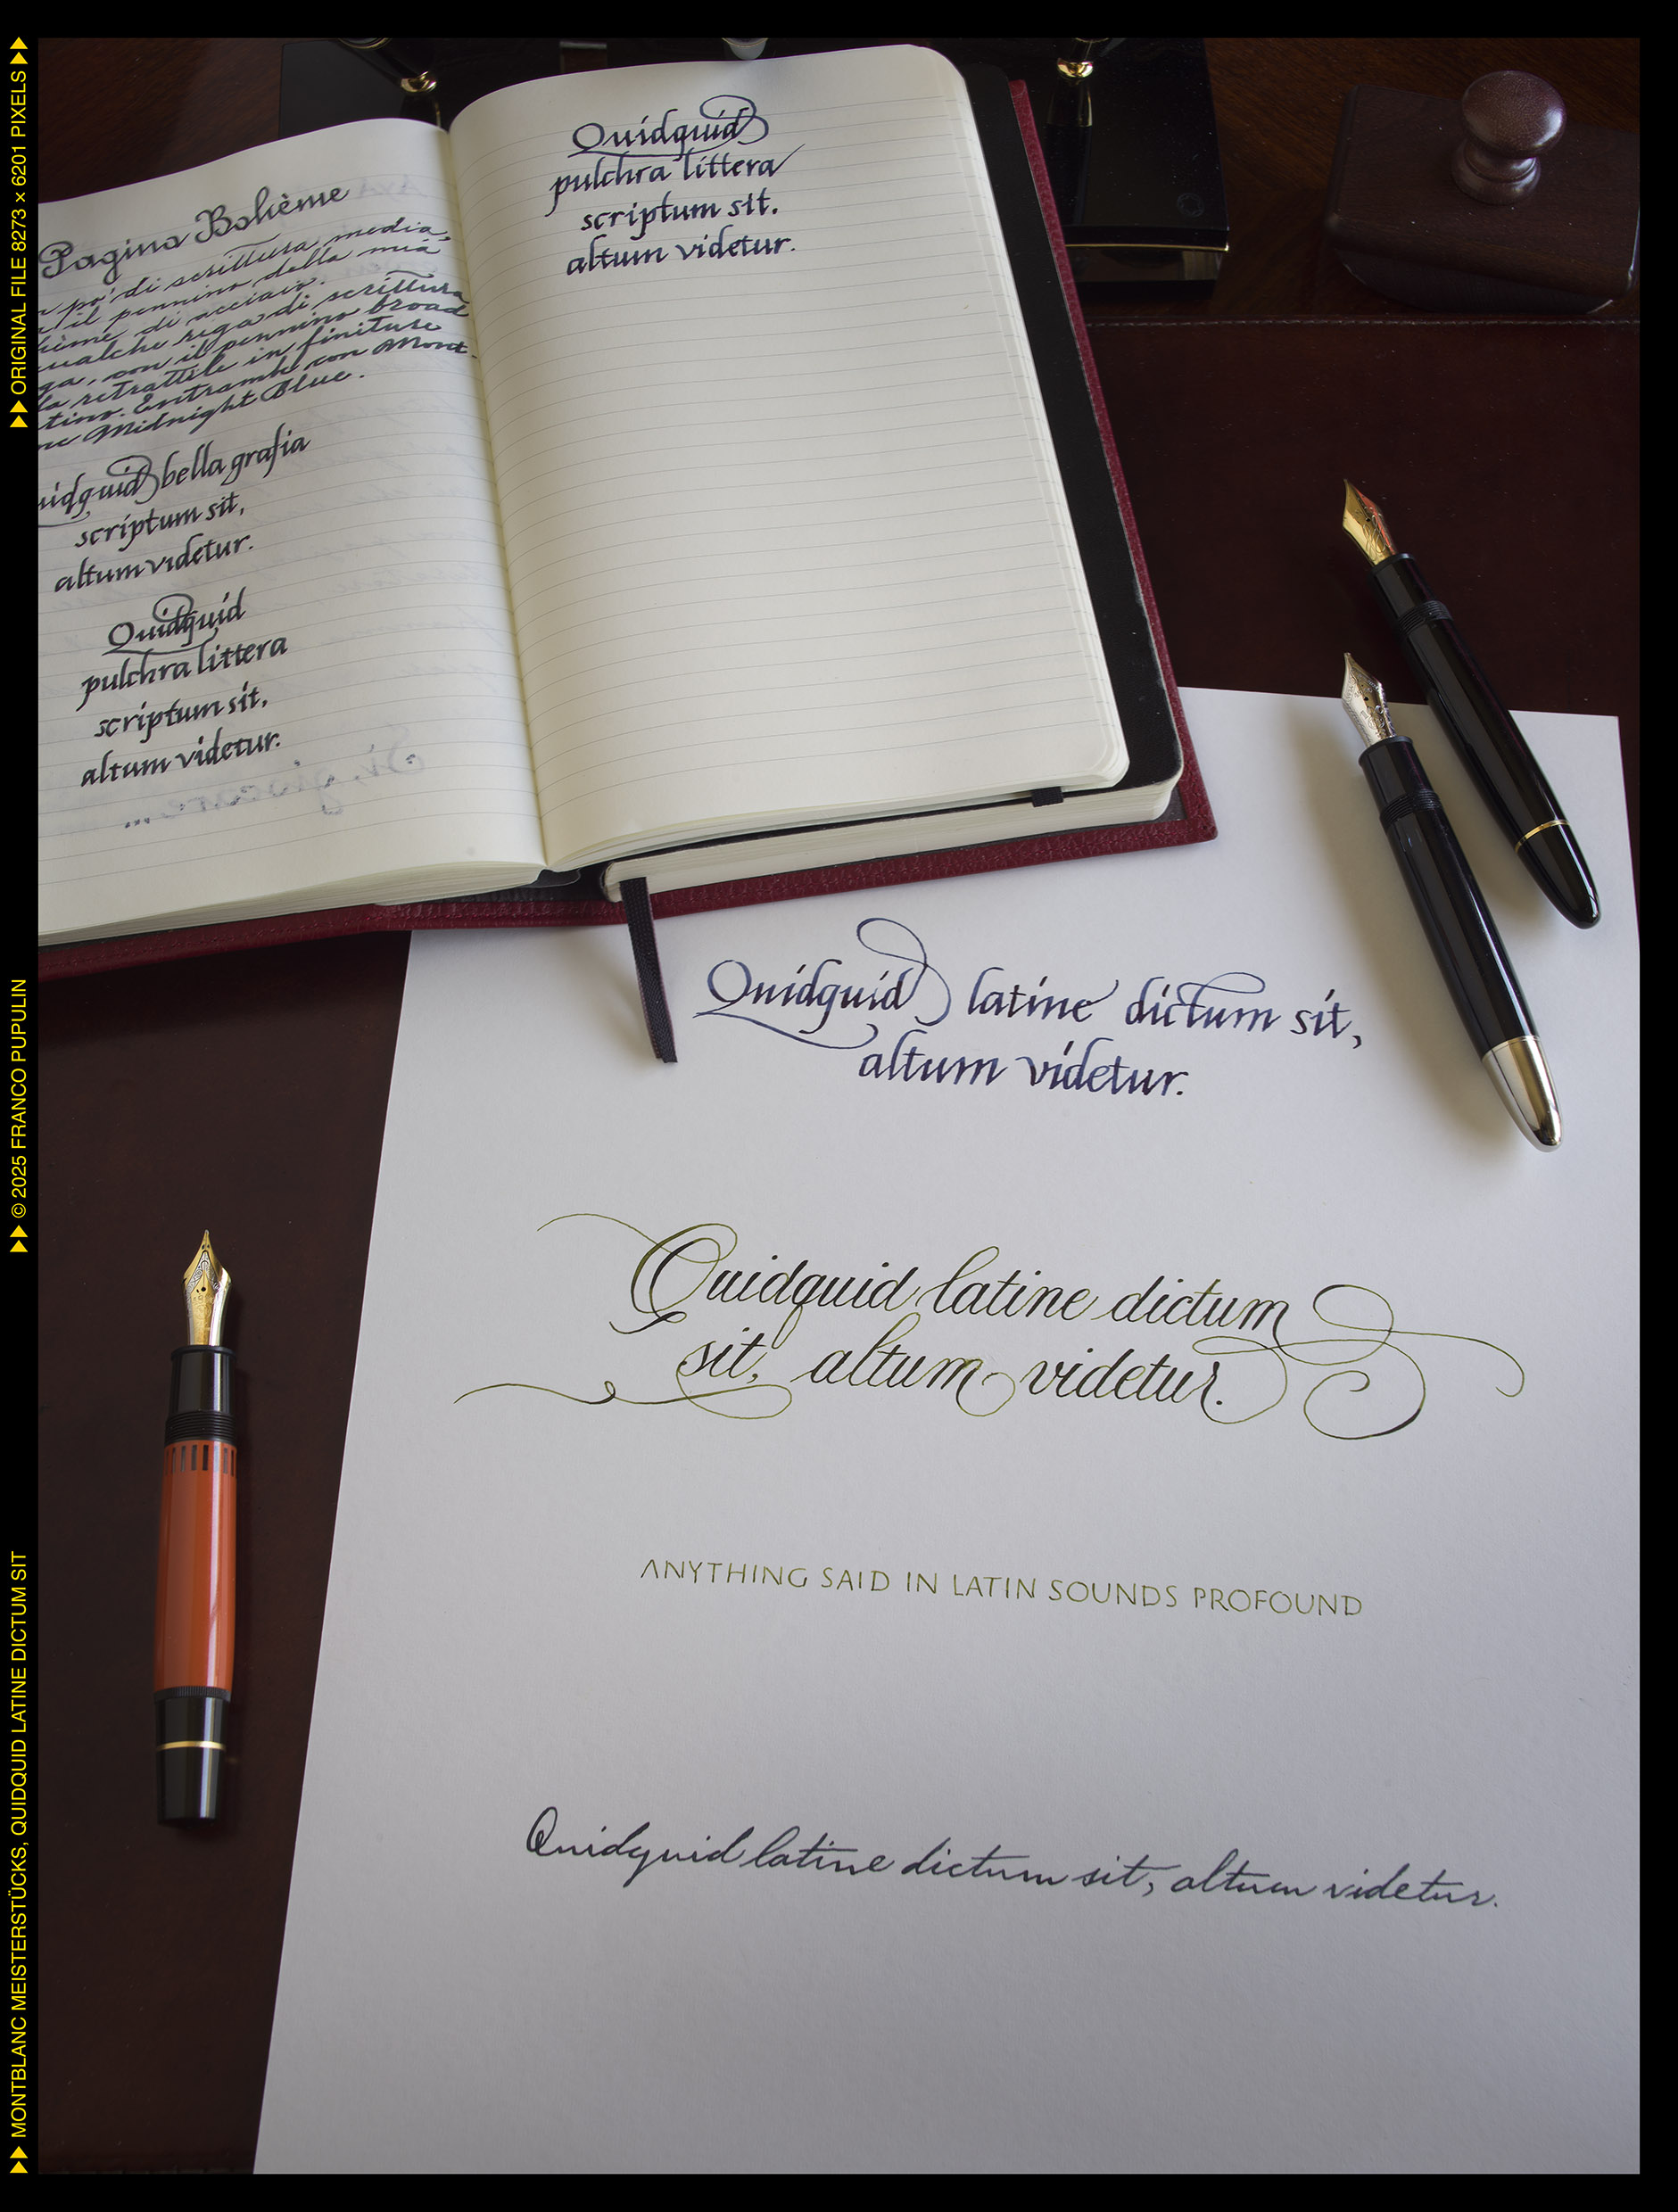 Pagina Bohème
po' di scrittura media,
il pennino della mia
di acciaio.
qualche riga di scrittura
con il pennino broad
retrattile in finiture
Entrambi con Mont-
Midnight Blue.
Quidquid bella grafia
scriptum sit,
altum videtur.
Quidquid
pulchra littera
scriptum sit,
altum videtur.
Quidquid
pulchra littera
scriptum sit,
altum videtur.
Quidquid latine dictum sit,
altum videtur.
Quidquid latine dictum
sit, altum videtur.
ANYTHING SAID IN LATIN SOUNDS PROFOUND
Quidquid latine dictum sit, altum videtur.
MONTBLANC MEISTERSTÜCKS, QUIDQUID LATINE DICTUM SIT
© 2025 FRANCO PUPULIN
ORIGINAL FILE 8273 × 6201 PIXELS